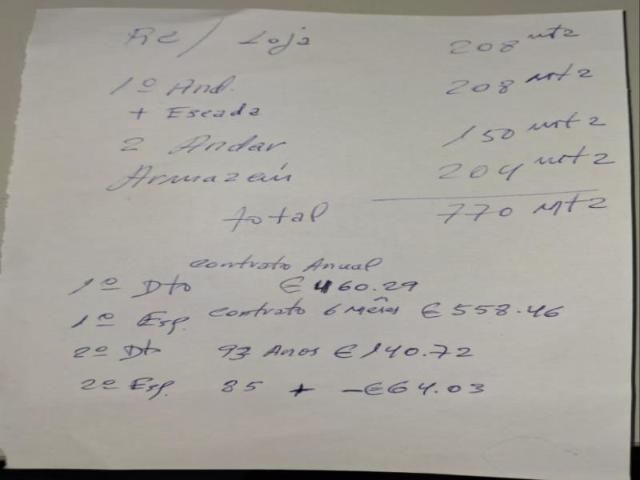 RC / Loja 208 mt2
1º And. 208 mt2
+ Escada
2 Andar 150 mt2
Armazém 204 mt2
total 770 mt2
contrato Anual
1º Dto € 460.29
1º Esq. contrato 6 mêses € 558.46
2º Dto 93 Anos € 140.72
2º Esq. 85 + -€64.03